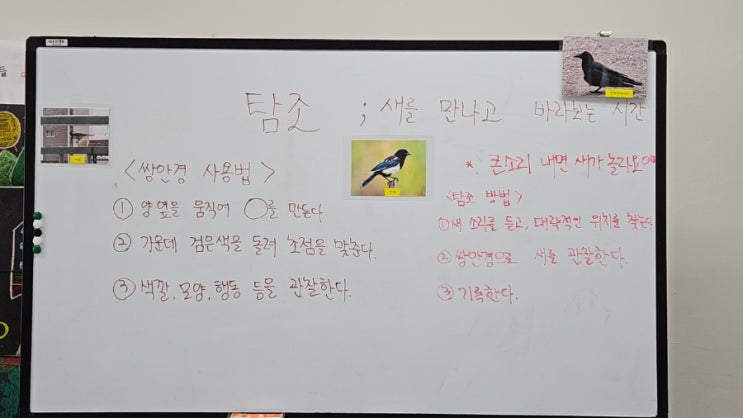 탐조 ; 새를 만나고 바라보는 시간
<쌍안경 사용법>
① 양옆을 움직여 ◯를 만든다
② 가운데 검은색을 돌려 초점을 맞춘다.
③ 색깔, 모양, 행동 등을 관찰한다.
* 큰소리 내면 새가 놀라요
<탐조 방법>
① 새 소리를 듣고, 대략적인 위치를 찾는다
② 쌍안경으로 새를 관찰한다.
③ 기록한다.